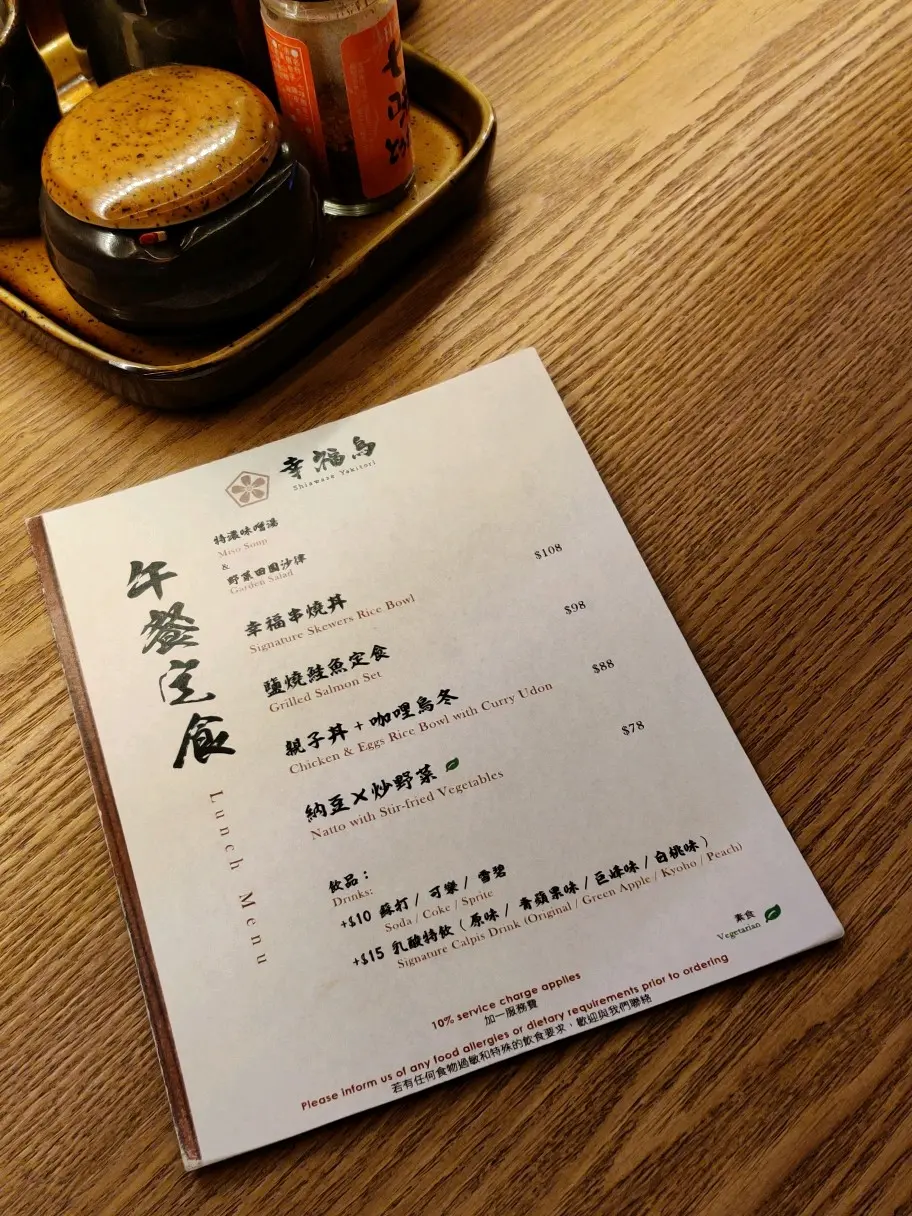 七味
幸福鳥
Shiawase Yakitori
午餐定食
Lunch Menu
特濃味噌湯
Miso Soup
&
野菜田園沙律
Garden Salad
幸福串燒丼 $108
Signature Skewers Rice Bowl
鹽燒鮭魚定食 $98
Grilled Salmon Set
親子丼 + 咖哩烏冬 $88
Chicken & Eggs Rice Bowl with Curry Udon
納豆X炒野菜 $78
Natto with Stir-fried Vegetables
飲品：
Drinks:
+$10 蘇打 / 可樂 / 雪碧
Soda / Coke / Sprite
+$15 乳酸特飲 ( 原味 / 青蘋果味 / 巨峰味 / 白桃味 )
Signature Calpis Drink (Original / Green Apple / Kyoho / Peach)
素食
Vegetarian
10% service charge applies
加一服務費
Please inform us of any food allergies or dietary requirements prior to ordering
若有任何食物過敏和特殊的飲食要求，歡迎與我們聯絡